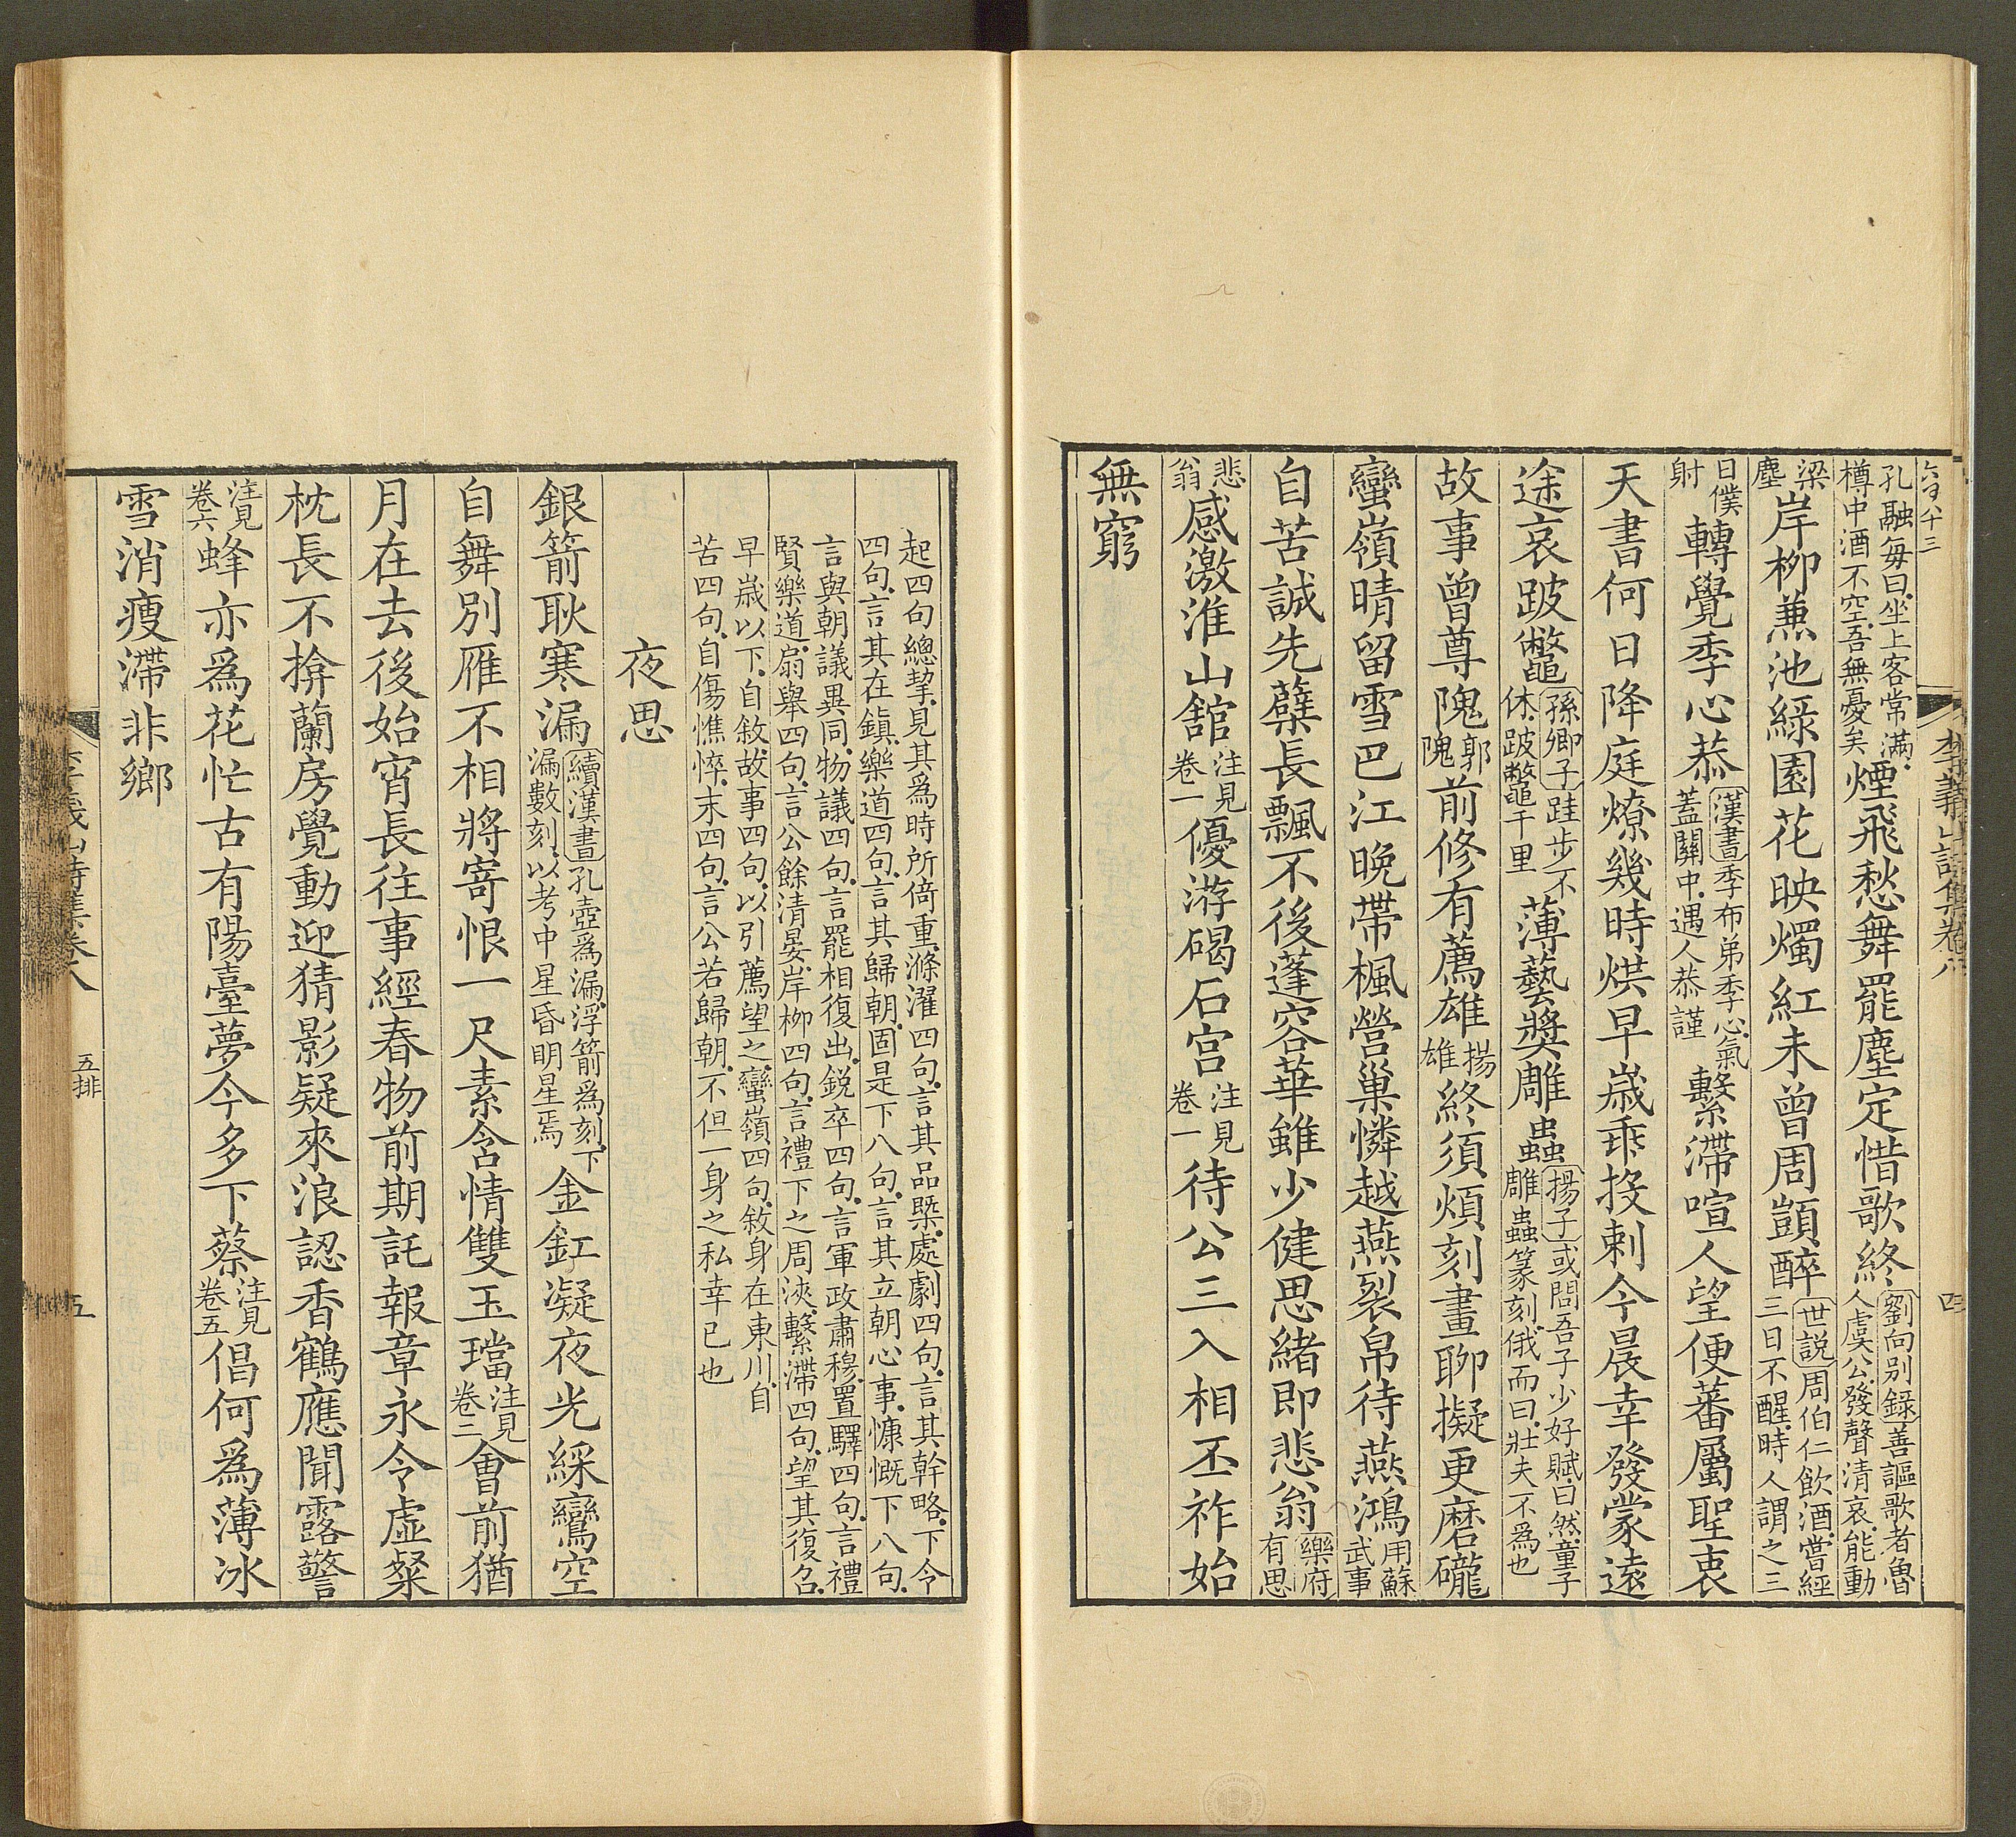 孔融每曰坐上客常滿
樽中酒不空吾無憂矣
煙飛愁舞罷塵定惜歌終
劉向別錄善謳歌者魯
人虞公發聲清哀能動
梁
塵
岸柳兼池綠園花映燭紅未曾周顗醉
世説周伯仁飲酒嘗經
三日不醒時人謂之三
日僕
射
轉覺季心恭
漢書季布弟季心氣
蓋關中遇人恭謹
繫滯喧人望便蕃屬聖衷
天書何日降庭燎幾時烘早歲乖投刺今晨幸發蒙遠
途哀跛鼈
孫卿子跬步不
休跛鼈千里
薄藝獎雕蟲
揚子或問吾子少好賦曰然童子
雕蟲篆刻俄而曰壯夫不為也
故事曾尊隗
郭
隗
前修有薦雄
揚
雄
終須煩刻畫聊擬更磨礲
蠻嶺晴留雪巴江晚帶楓營巢憐越燕裂帛待燕鴻
用蘇
武事
自苦誠先蘗長飄不後蓬容華雖少健思緒即悲翁
樂府
有思
悲
翁
感激淮山館
注見
卷一
優游碣石宫
注見
卷一
待公三入相丕祚始
無窮
李義山詩集卷八
四
起四句總挈見其為時所倚重滌濯四句言其品槩處劇四句言其幹略下令
四句言其在鎮樂道四句言其歸朝固是下八句言其立朝心事慷慨下八句
言與朝議異同物議四句言罷相復出鋭卒四句言軍政肅穆置驛四句言禮
賢樂道扇舉四句言公餘清晏岸柳四句言禮下之周浹繫滯四句望其復召
早歲以下自敘故事四句以引薦望之蠻嶺四句敘身在東川自
苦四句自傷憔悴末四句言公若歸朝不但一身之私幸已也
夜思
銀箭耿寒漏
續漢書孔壺為漏浮箭為刻下
漏數刻以考中星昏明星焉
金釭凝夜光綵鸞空
自舞別雁不相將寄恨一尺素含情雙玉璫
注見
卷二
會前猶
月在去後始宵長往事經春物前期託報章永令虛粲
枕長不揜蘭房覺動迎猜影疑來浪認香鶴應聞露警
注見
卷六
蜂亦為花忙古有陽臺夢今多下蔡
注見
卷五
倡何為薄冰
雪消瘦滯非鄉
李義山詩集卷八
五排
五